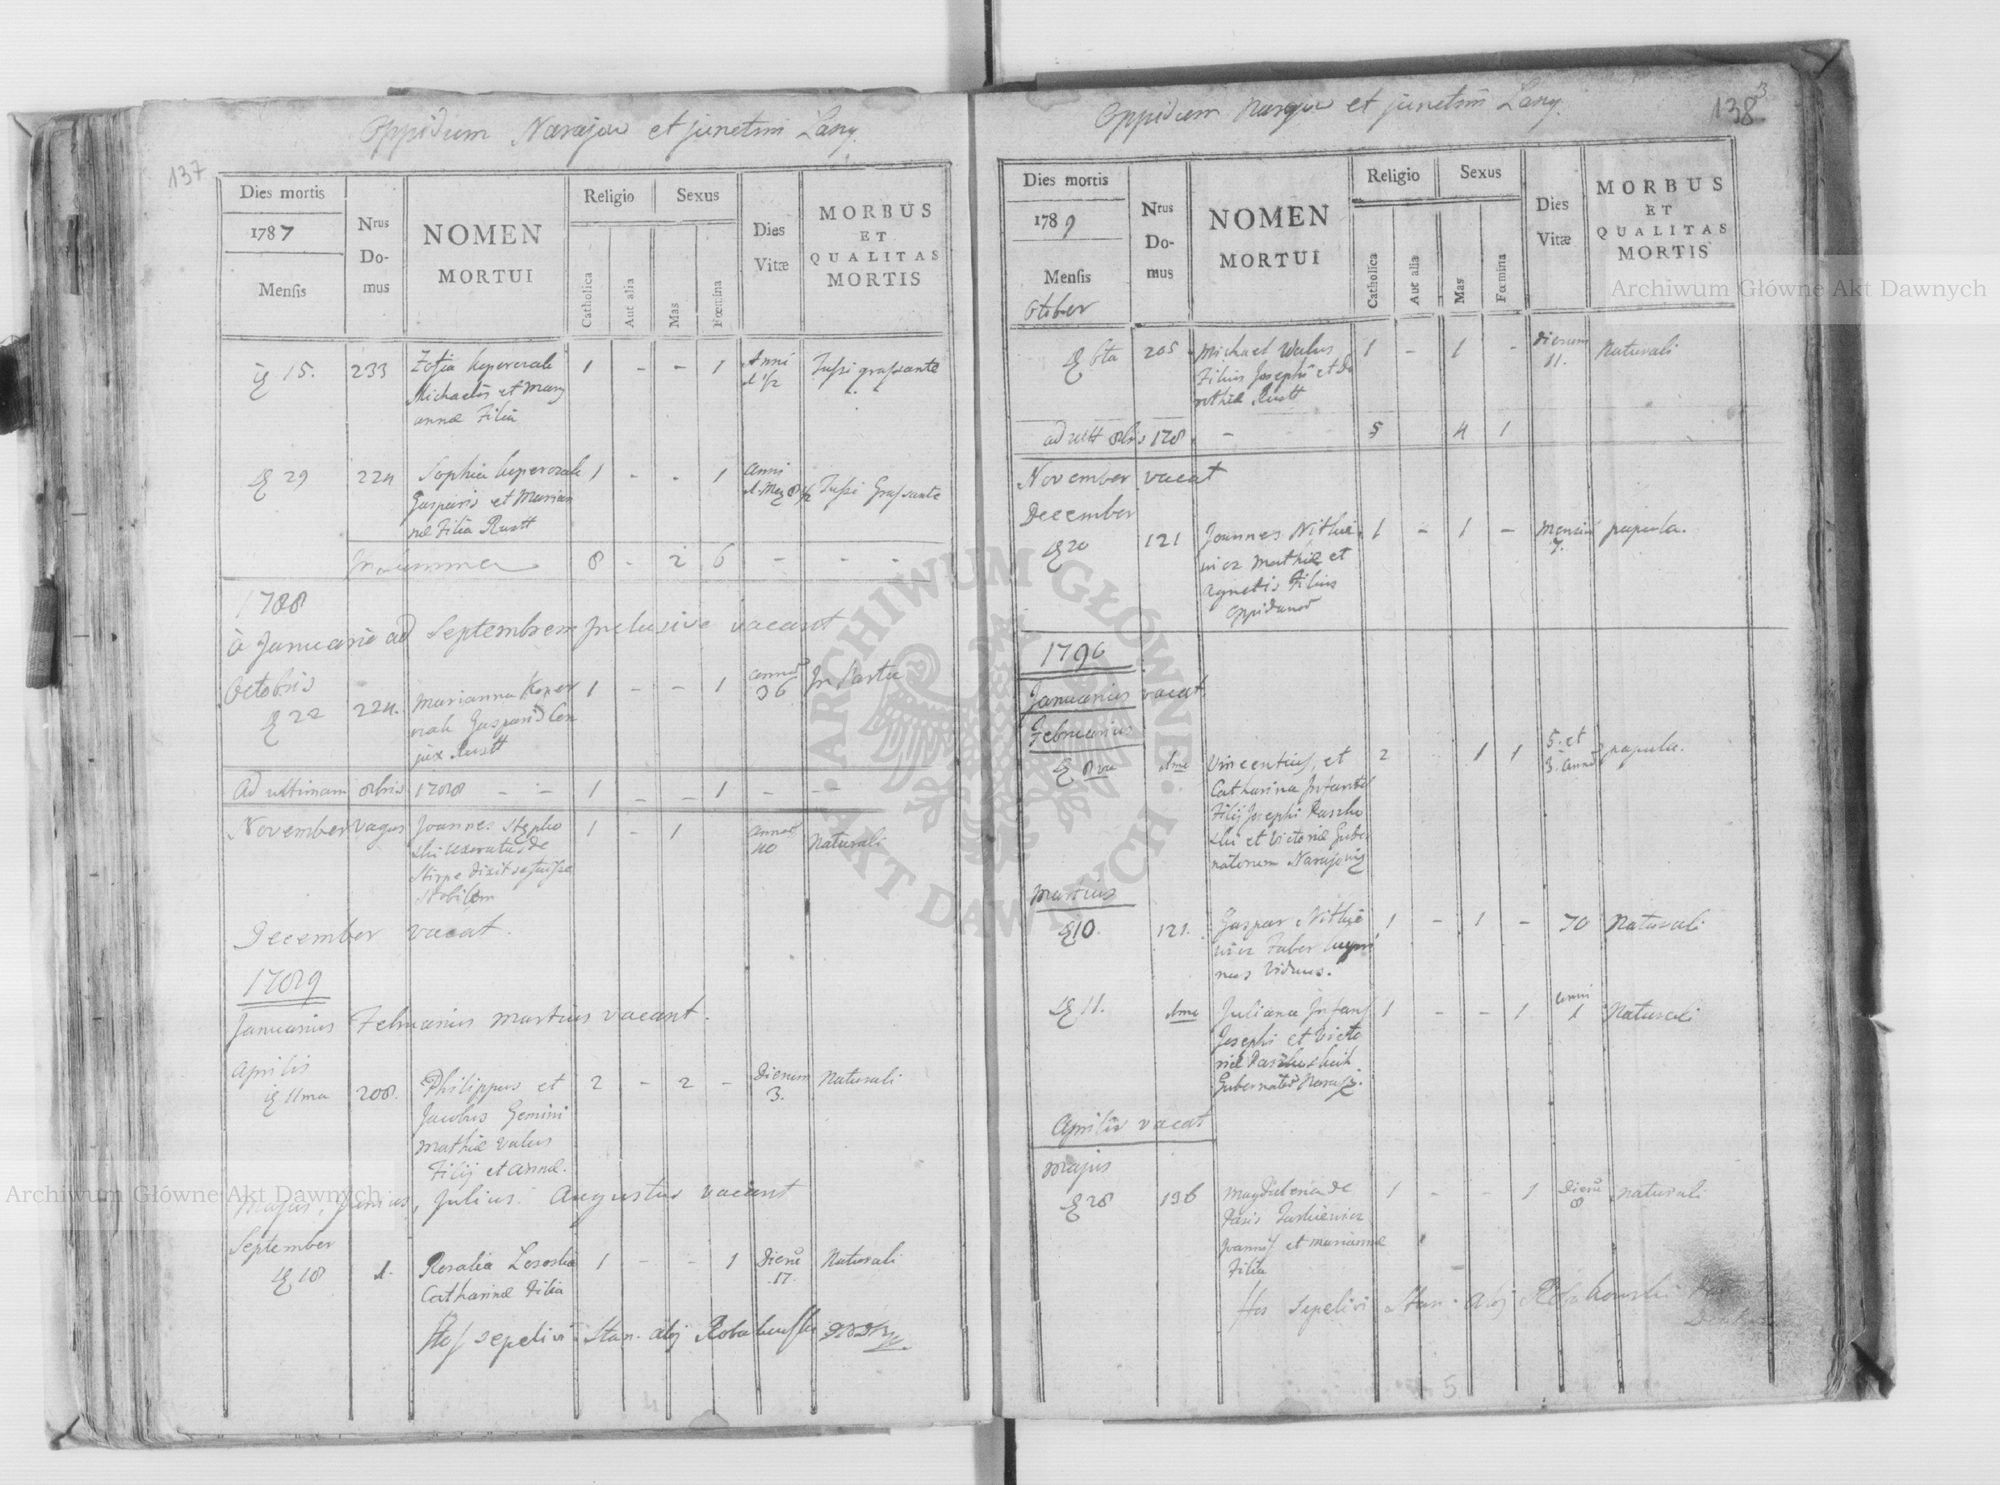 137
Oppidum Narajow et junctim Lany.
Dies mortis
1787
Mensis
Nrus
Do-
mus
NOMEN
MORTUI
Religio
Catholica
Aut alia
Sexus
Mas
Fœmina
Dies
Vitæ
MORBUS
ET
QUALITAS
MORTIS
15. 233 Zofia 1 - - 1 Anni 1/2 Tussi grassante
Michaelis et Mary
annæ Filia
29 224 Sophia 1 - - 1 Anni Tussi Grassante
Gasparis et Marian
næ Filia Rustt
In summa 8 - 2 6 - - -
1788
à Januario ad Septembrem Inclusive vacant
Octobris
22 224. Marianna 1 - - 1 annor 36 In Partu
Gasparis Con
jux Rustt
Ad ultimam 8bris 1788 - - 1 - - 1 - -
November vagus Joannes 1 - 1 annor 40 Naturali
de
Stirpe dixit se fuisse
Nobilem
December vacat.
1789
Januarius Februarius Martius vacant.
Aprilis
11ma 208. Philippus et 2 - 2 - Dierum 3. Naturali
Jacobus Gemini
Mathiæ Valus
Filij et Annæ.
Majus, Junius, Julius. Augustus vacant
September
18 1. Rosalia 1 - - 1 Dierũ 17. Naturali
Catharinæ Filia
Hos sepelivi Stan. Alj
138
3
Oppidum Narajow et junctim Lany.
Dies mortis
1789
Mensis
October
Nrus
Do-
mus
NOMEN
MORTUI
Religio
Catholica
Aut alia
Sexus
Mas
Fœmina
Dies
Vitæ
MORBUS
ET
QUALITAS
MORTIS
6ta 205 Michael Walus 1 - 1 - Dierum 11. Naturali
Filius Josephi et Do
rothiæ Rustt
ad ult 8bris 178 - 5 4 1
November vacat
December
20 121 Joannes Nithie 1 - 1 - Mensiũ 7. papula.
wicz Mathiæ et
Agnetis Filius
Oppidanor
1790
Januarius vacat
Februarius
8va Vincentius, et 2 1 1 5. et 3. annor papula.
Catharina Infantes
Filij Josephi
et Victoriæ Guber
natorum
Martius
10. 121. Gaspar Nithie 1 - 1 - 70 Naturali
wicz Faber
Viduus.
11. Juliana Infans 1 - - 1 anni 1 Naturali
Josephi et Victo
riæ
Aprilis vacat
Majus
28 136 Magdalena de 1 - - 1 Dierũ 8 naturali
Joannis et Mariannæ
Filia
Hos sepelivi Stan. Alj
5
ARCHIWUM GŁÓWNE AKT DAWNYCH
Archiwum Główne Akt Dawnych
Archiwum Główne Akt Dawnych